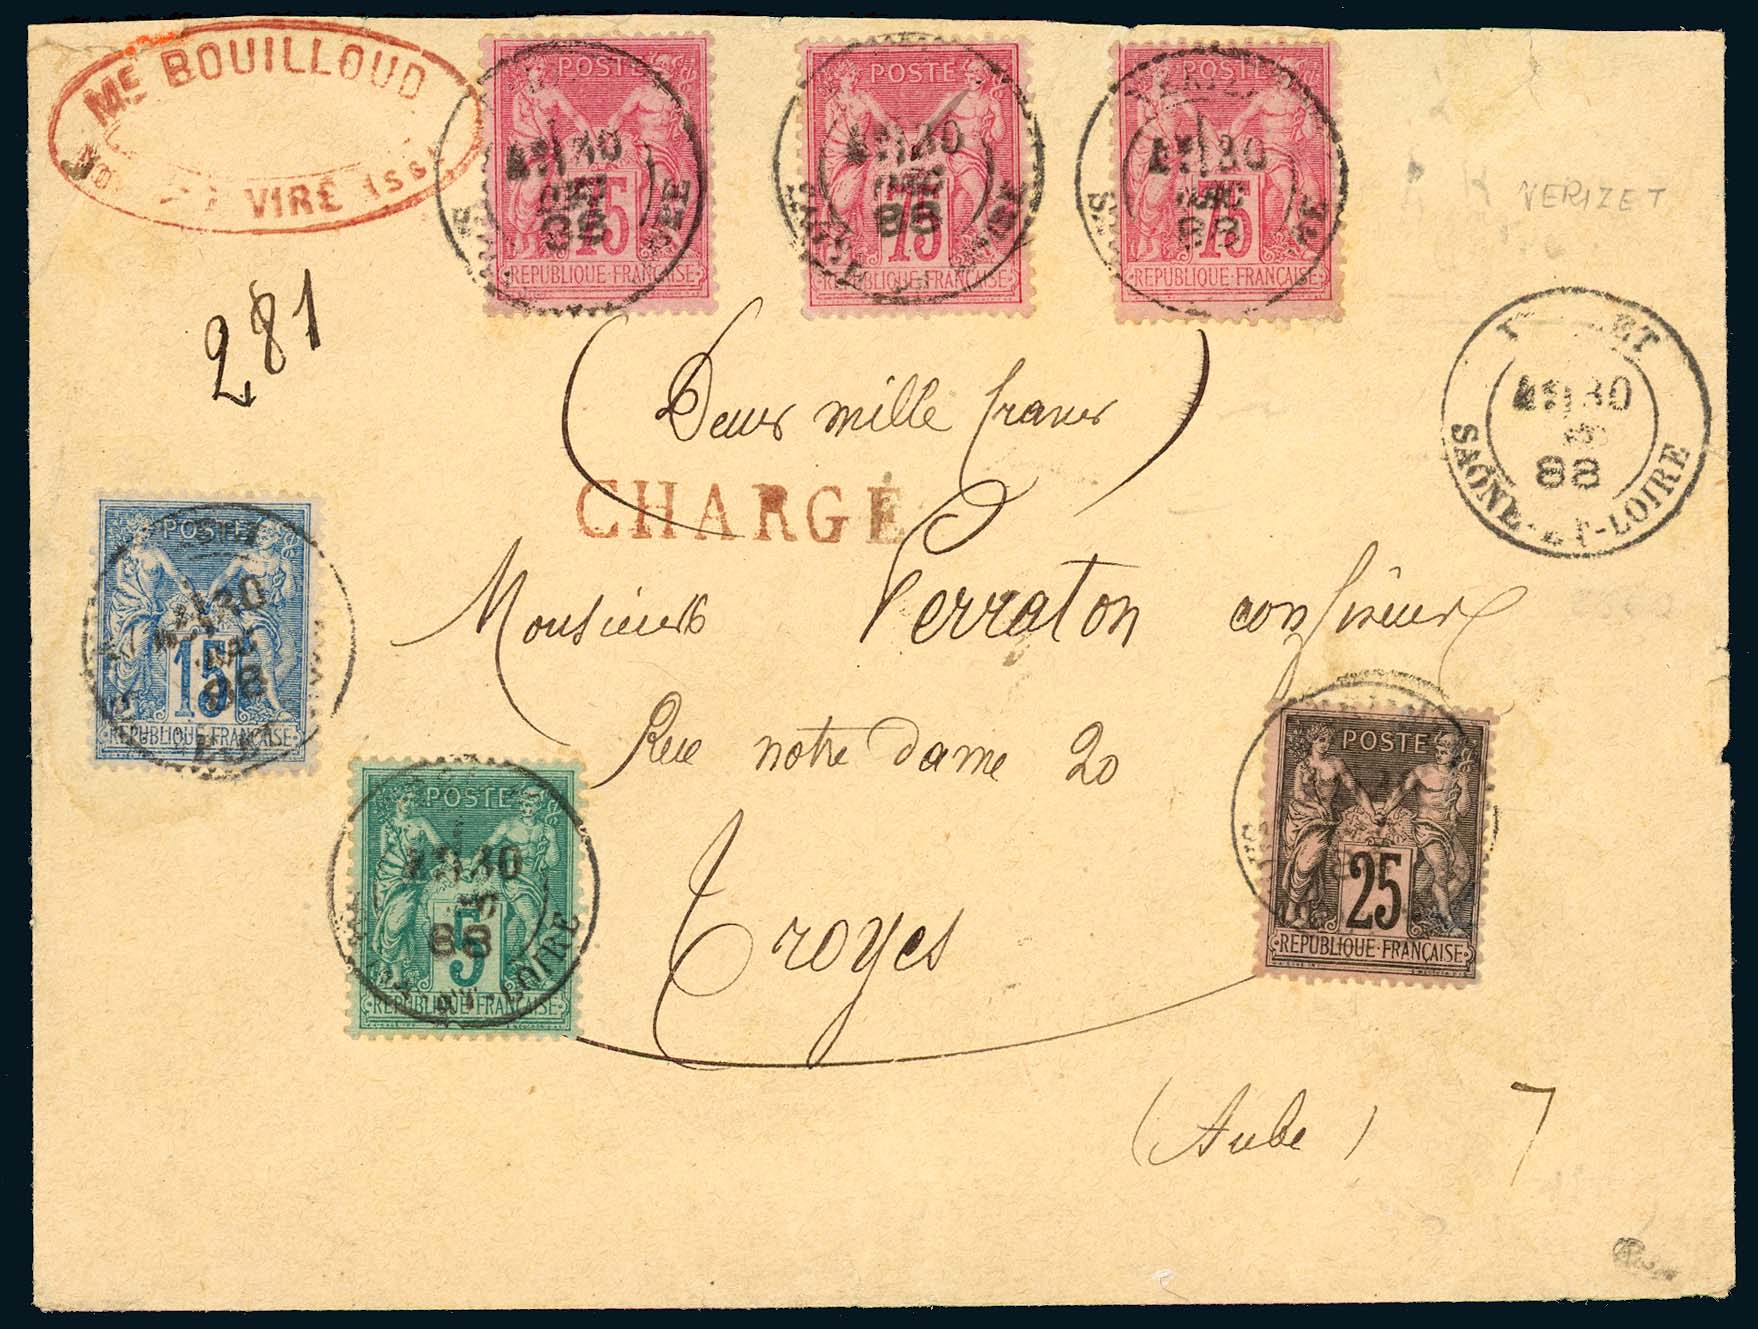 Me BOUILLOUD
VIRÉ
POSTE
75
REPUBLIQUE·FRANÇAISE
POSTE
75
REPUBLIQUE·FRANÇAISE
POSTE
75
REPUBLIQUE·FRANÇAISE
VERIZET
281
ET
30
88
SAÔNE-ET-LOIRE
(Deux mille francs)
CHARGÉ
POSTE
15
REPUBLIQUE·FRANÇAISE
30
88
Monsieur Perraton confiseur
Rue notre dame 20
POSTE
5
REPUBLIQUE·FRANÇAISE
30
88
LOIRE
POSTE
25
REPUBLIQUE·FRANÇAISE
Troyes
(Aube)
7